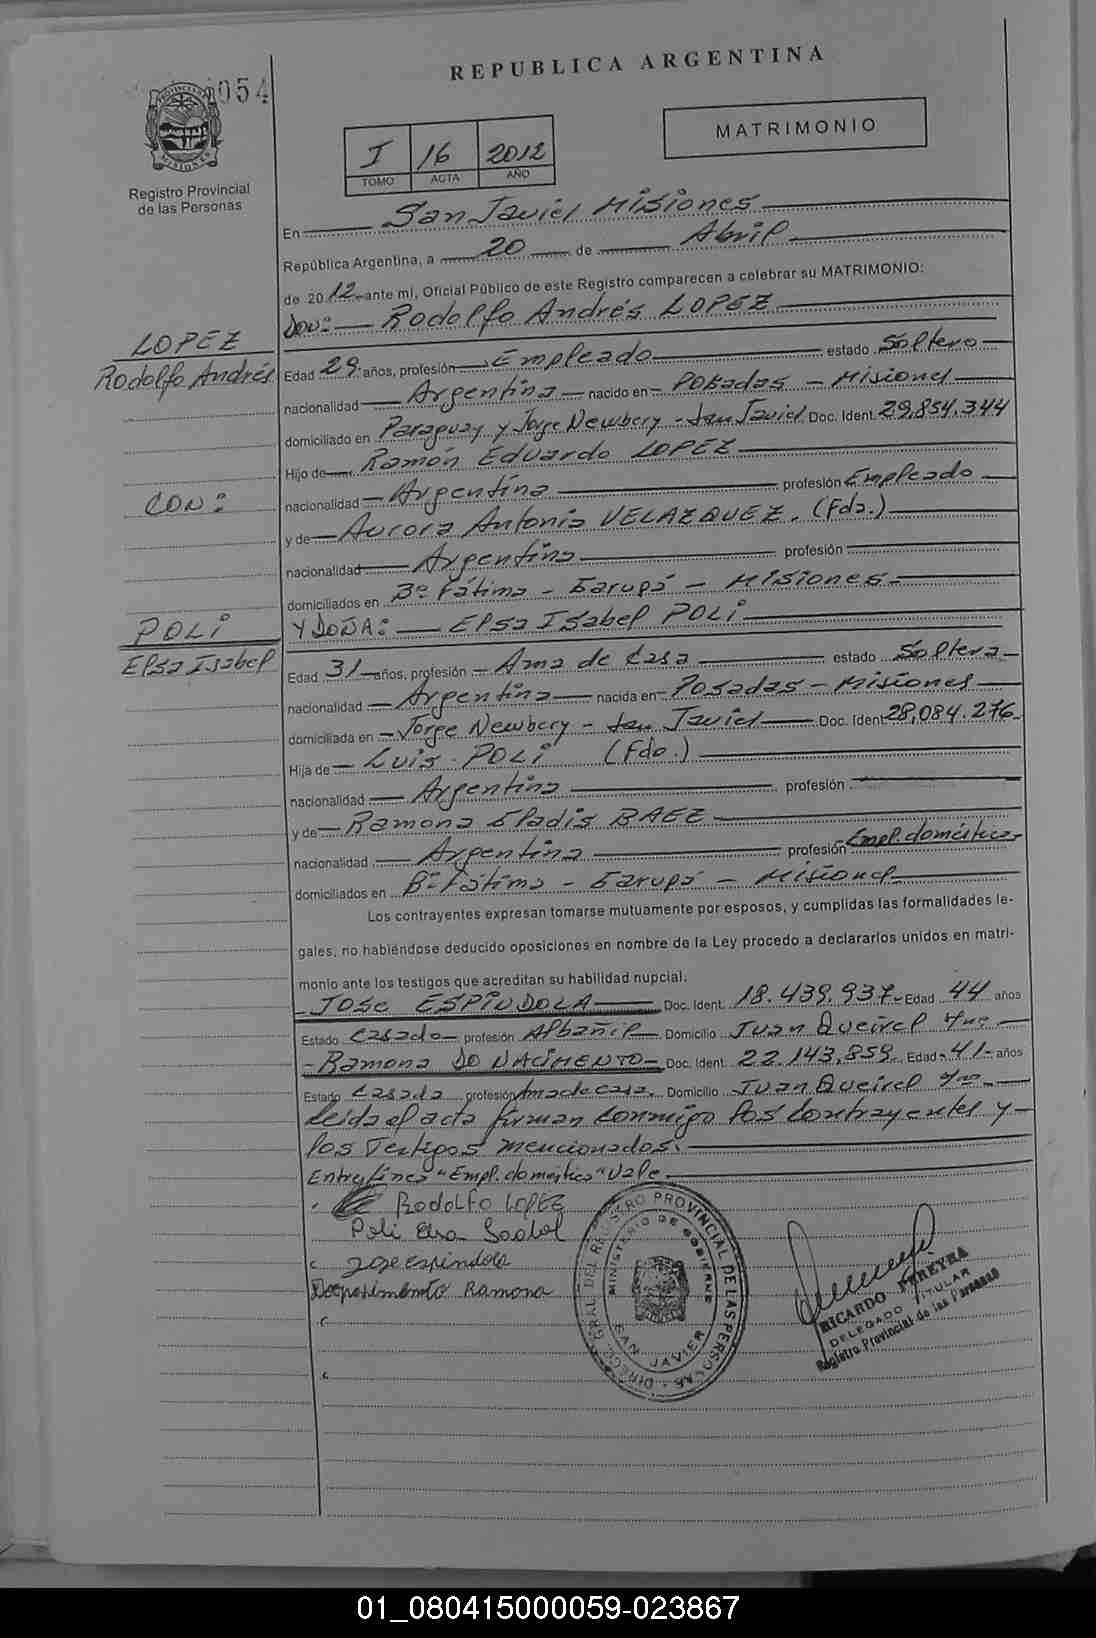 REPUBLICA ARGENTINA
054
MATRIMONIO
I 16 2012
TOMO ACTA AÑO
PROVINCIA DE MISIONES
Registro Provincial
de las Personas
En San Javier Misiones
República Argentina, a 20 de Abril
de 2012 ante mí, Oficial Público de este Registro comparecen a celebrar su MATRIMONIO:
DON: Rodolfo Andrés LOPEZ
LOPEZ
Rodolfo Andrés
Edad 29 años, profesión Empleado estado Soltero
nacionalidad Argentina nacido en Posadas - Misiones
domiciliado en Paraguay y Jorge Newbery - San Javier Doc. Ident. 29.854.344
Hijo de Ramón Eduardo LOPEZ
CON:
nacionalidad Argentina profesión Empleado
y de Aurora Antonia VELAZQUEZ. (Fda.)
nacionalidad Argentina profesión
domiciliados en Bº Fátima - Garupá - Misiones
POLI
Elsa Isabel
Y DOÑA: Elsa Isabel POLI
Edad 31 años, profesión Ama de Casa estado Soltera
nacionalidad Argentina nacida en Posadas - Misiones
domiciliada en Jorge Newbery - San Javier Doc. Ident. 28.084.276
Hija de Luis POLI (Fdo.)
nacionalidad Argentina profesión
y de Ramona Eladis BAEZ
nacionalidad Argentina profesión Empl. doméstica
domiciliados en Bº Fátima - Garupá - Misiones
Los contrayentes expresan tomarse mutuamente por esposos, y cumplidas las formalidades le-
gales, no habiéndose deducido oposiciones en nombre de la Ley procedo a declararlos unidos en matri-
monio ante los testigos que acreditan su habilidad nupcial.
JOSE ESPINDOLA Doc. Ident. 18.439.937 Edad 44 años
Estado Casado profesión Albañil Domicilio Juan Queirel
Ramona DO NACIMENTO Doc. Ident. 22.143.859 Edad 41 años
Estado Casada profesión Ama de casa. Domicilio Juan Queirel
Leida el acta firman conmigo los contrayentes y
los Testigos mencionados.
Entre línea "Empl. doméstica" Vale
Rodolfo LOPEZ
Poli Elsa Isabel
jose espindola
Donacimento Ramona
DIRECC. GRAL. DEL REGISTRO PROVINCIAL DE LAS PERSONAS
MINISTERIO DE GOBIERNO
SAN JAVIER
RICARDO PEREYRA
DELEGADO TITULAR
Registro Provincial de las Personas
01_080415000059-023867